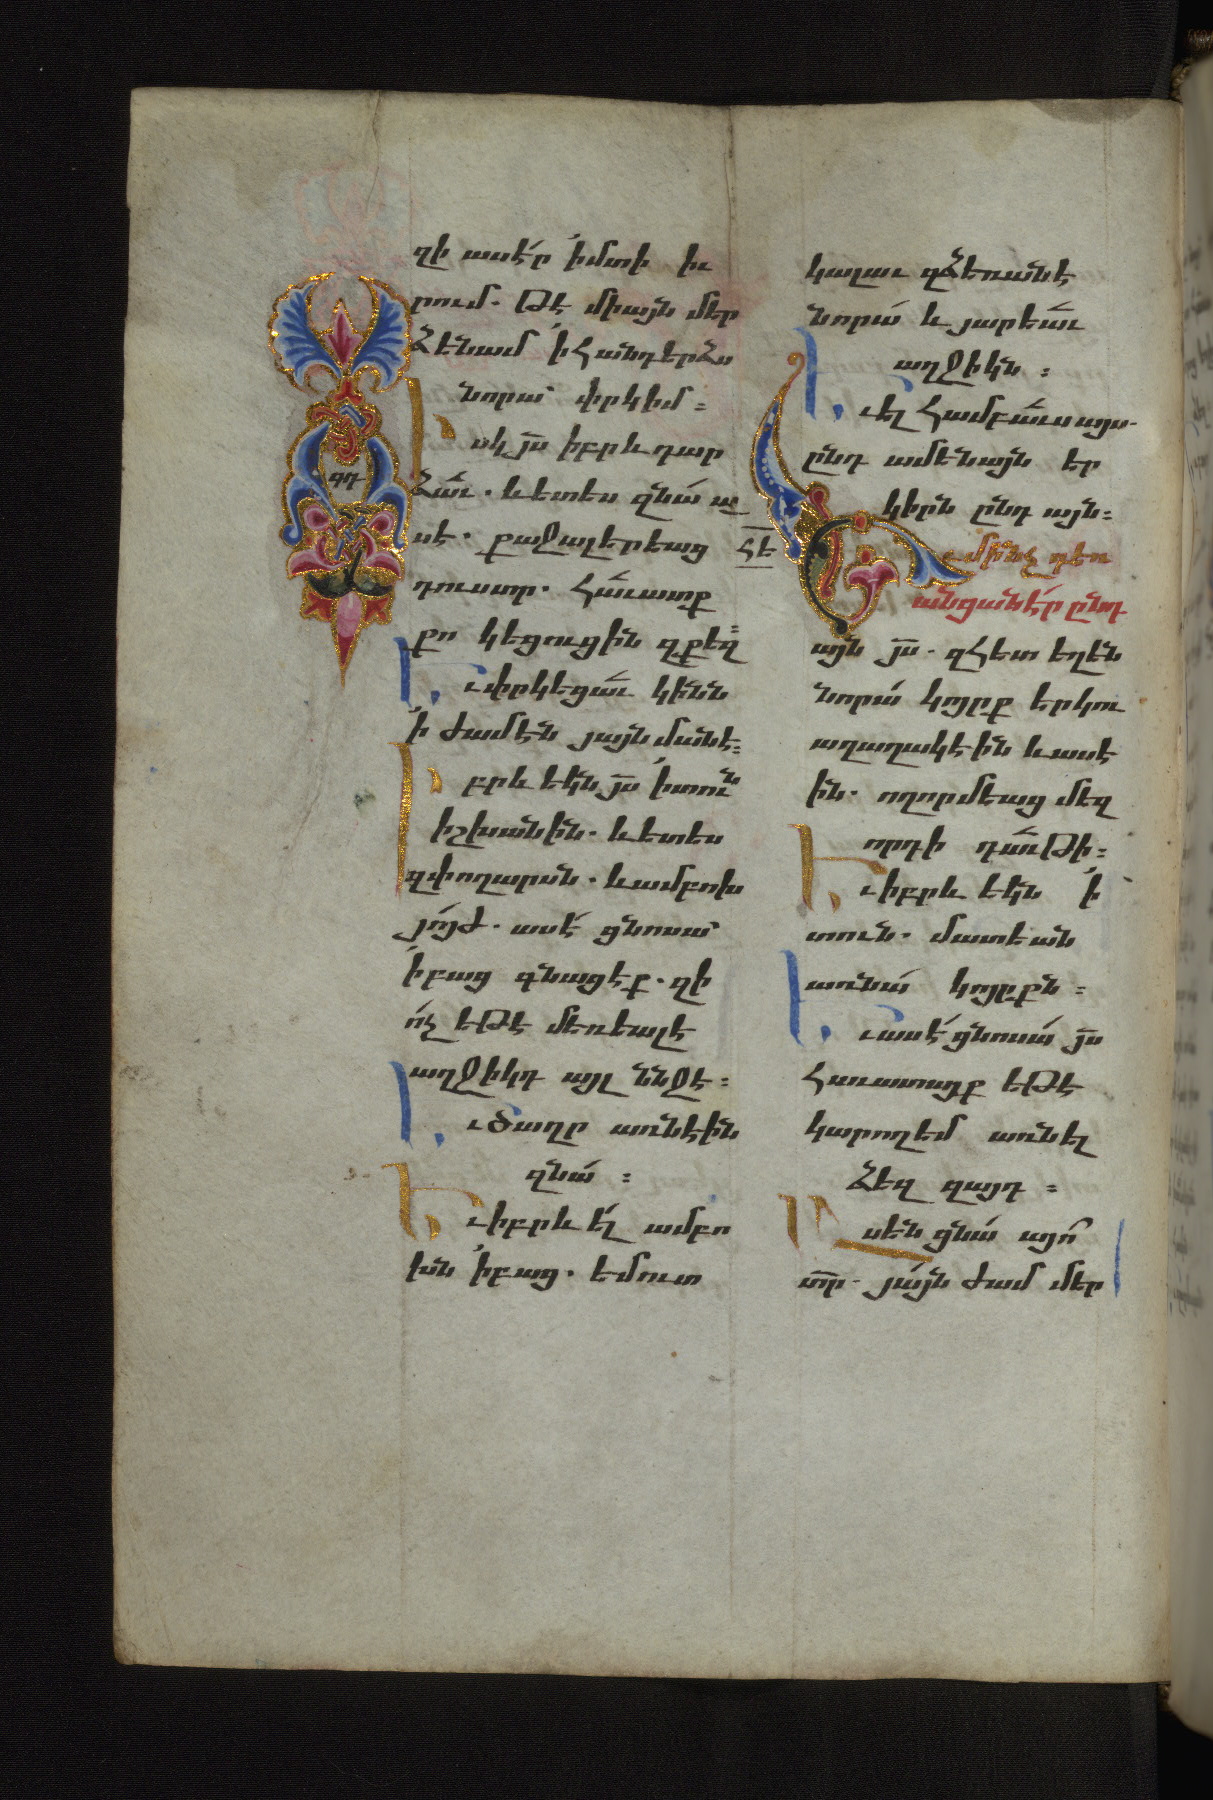 զի ասէր ՛ի մտի իւ
րում. թէ միայն մեր
ձենամ ՛ի հանդերձս
նորա՝ փրկիմ։
Իսկ յ̅ս իբրև դար
ձաւ. և ետես զնա ա
սէ. քաջալերեաց
դուստր. հաւատք
քո կեցուցին զքեզ։
Եւ փրկեցաւ կինն
՛ի ժամէն յայնմանէ։
Իբրև եկն յ̅ս ՛ի տուն
իշխանին. և ետես
զփողարսն. և ամբոխ
յոյժ. ասէ ցնոսա՝
՛ի բաց գնացէք. զի
ոչ եթէ մեռեալ է
աղջիկդ այլ ննջէ։
Եւ ծաղր առնէին
զնա։
Եւ իբրև ել ամբո
խն ՛ի բաց. եմուտ
կալաւ զձեռանէ
նորա և յարեաւ
աղջիկն։
Եւ ել համբաւս այս.
ընդ ամենայն եր
կիրն ընդ այն։
հե
Եւ մինչ դեռ
անցանէր ընդ
այն յ̅ս. զհետ եղեն
նորա կոյրք երկու
աղաղակէին և ասէ
ին. ողորմեաց մեզ
որդի դաւթի։
Եւ իբրև եկն ՛ի
տուն. մատեան
առ նա կոյրքն։
Եւ ասէ ցնոսա յ̅ս
հաւատայք եթէ
կարող եմ առնել
ձեզ զայդ։
Ասեն ցնա այո
տ̅ր. յայն ժամ մեր